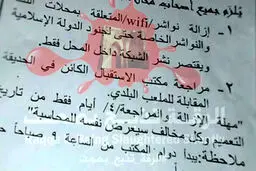 يلزم جميع أصحاب
١ - إزالة نواشر /wifi/المتعلقة بمحلات
والنواشر الخاصة حتى لجنود الدولة الإسلامية
ويقتصر نشر الشبكة داخل المحل فقط
٢ - مراجعة مكتب الاستقبال الكائن في الحديقة
المقابلة للملعب البلدي.
"مهلة والمراجعة/٤/ أيام فقط من تاريخ
التعميم وكل مخالف سيعرض نفسه للمحاسبة"
ملاحظة: يبدأ دوام المكتب من الساعة ٩ صباحاً
الرقة تذبح بصمت